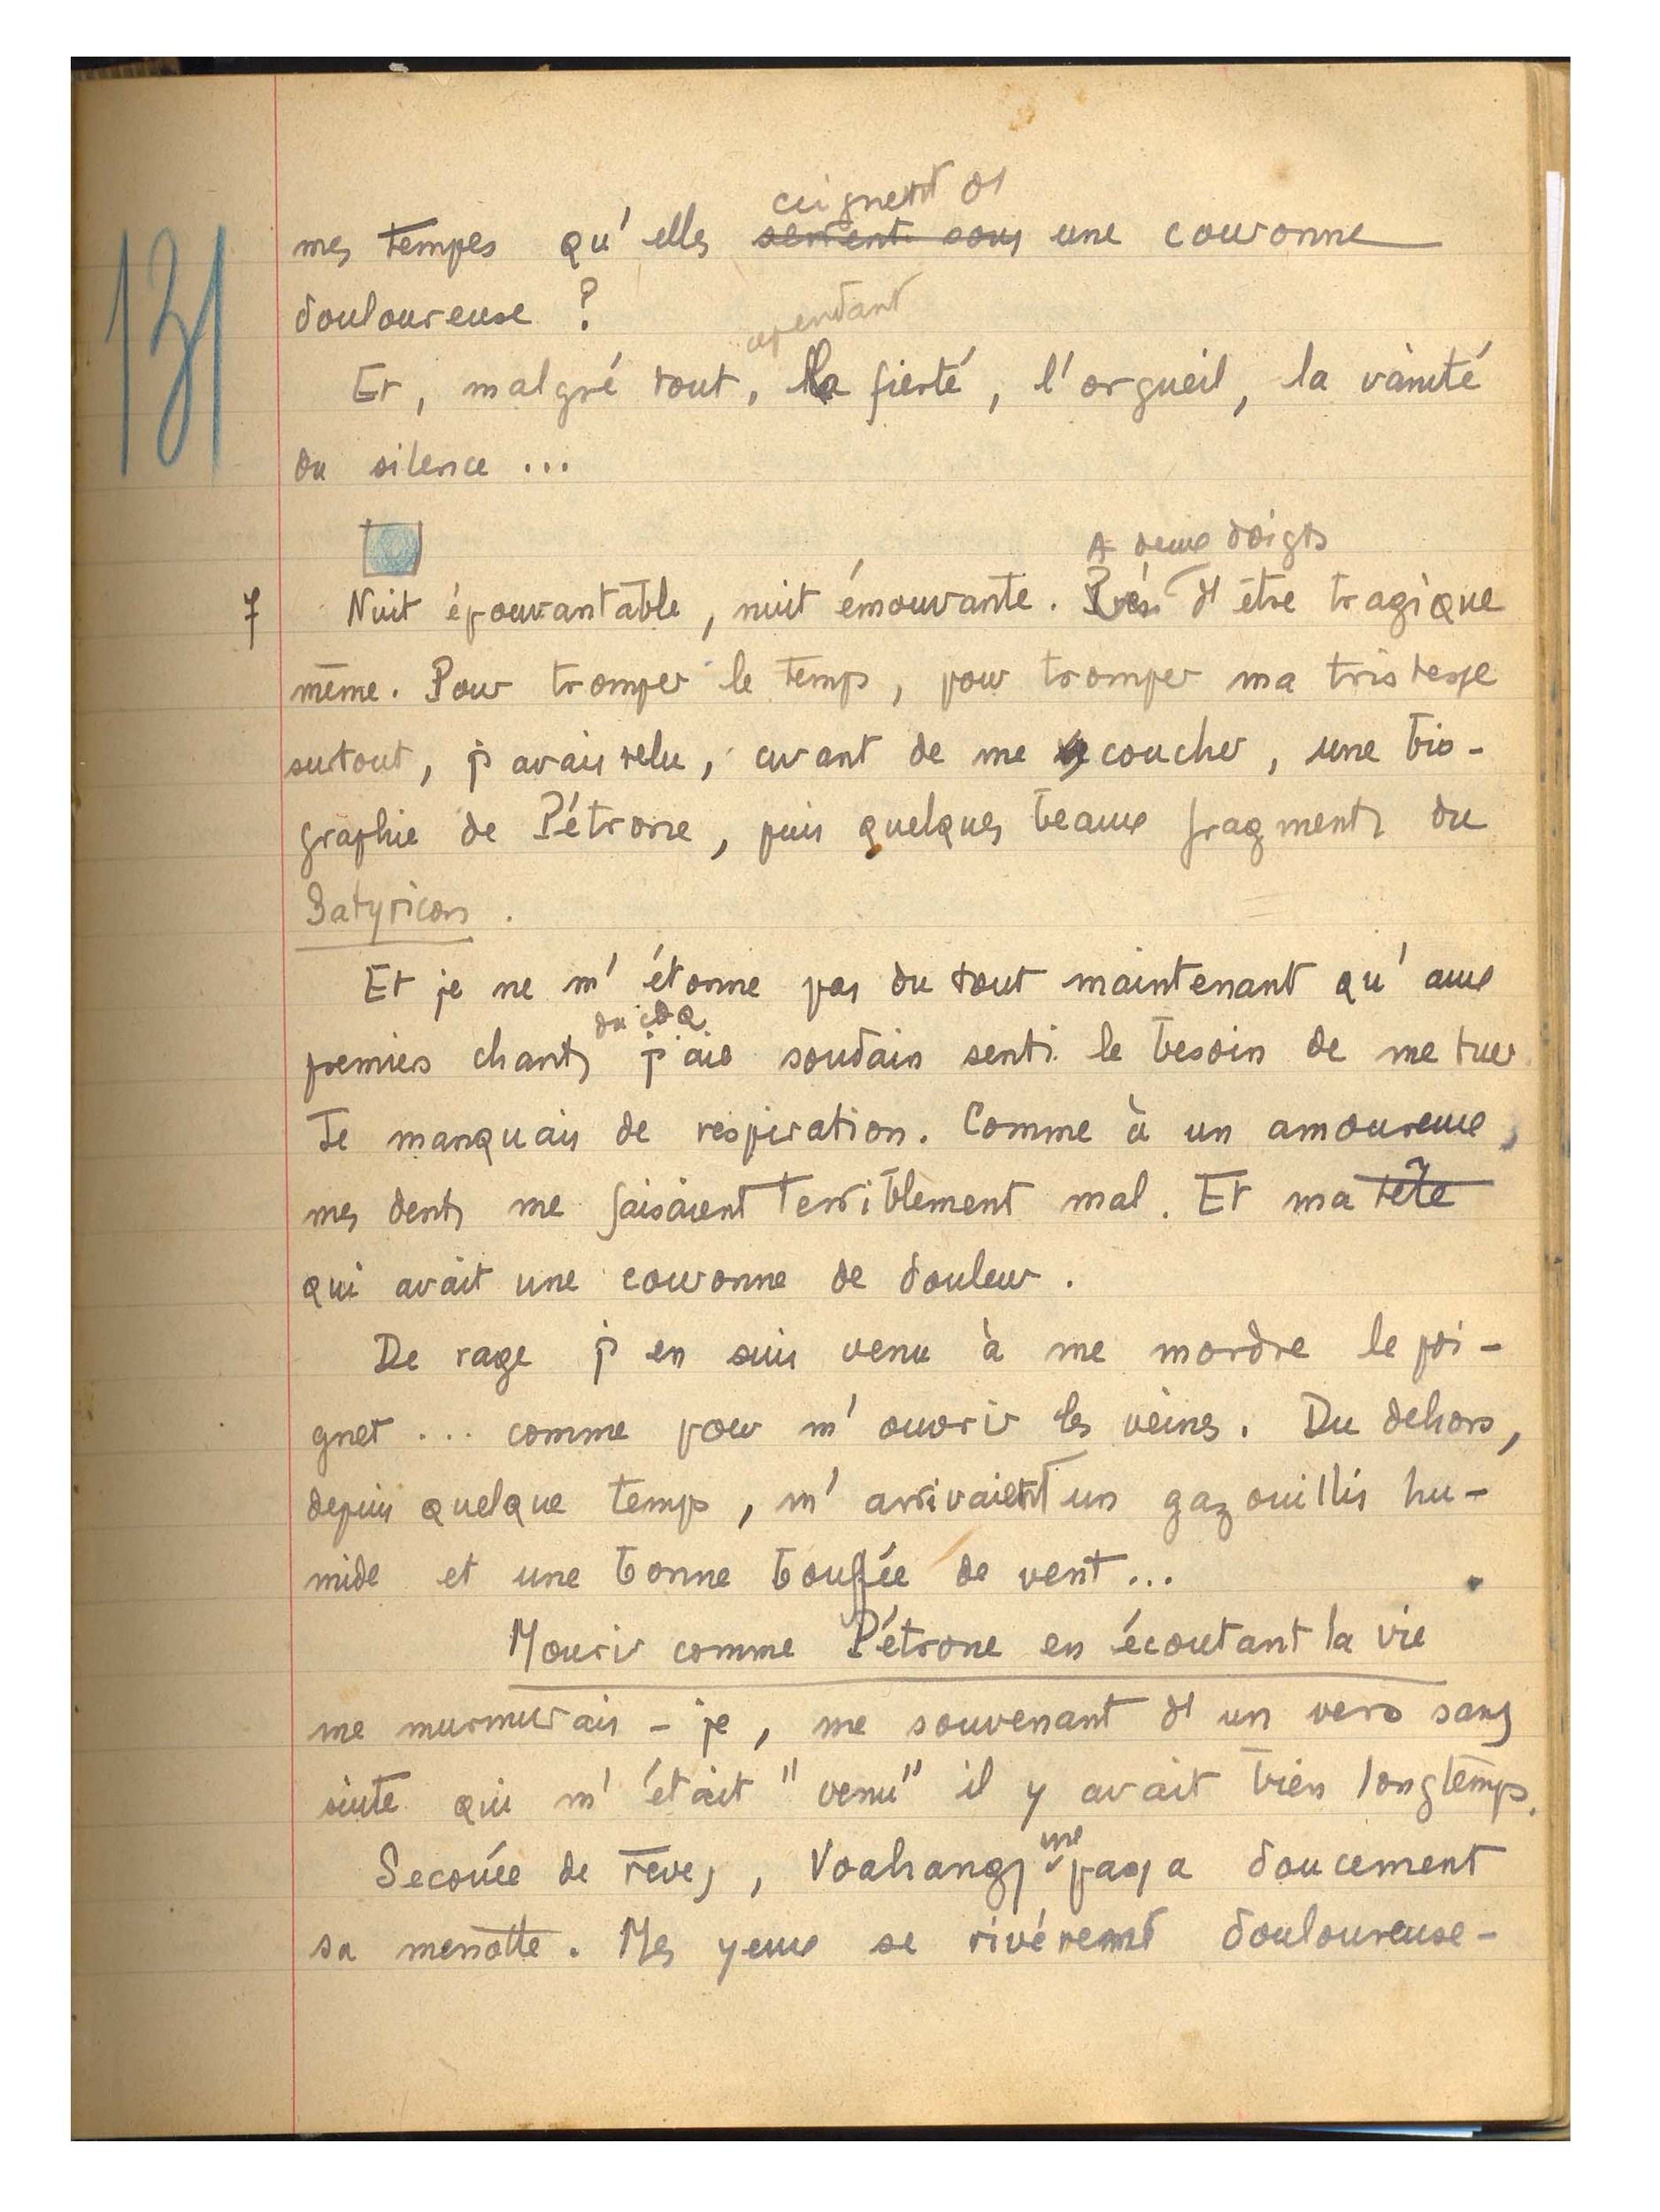 131
ceignent d'
mes tempes qu'elles serrent sous une couronne
douloureuse ?
cependant
Et, malgré tout, la fierté, l'orgueil, la vanité
du silence ...
A deux doigts
7 Nuit épouvantable, nuit émouvante. Près d'être tragique
même. Pour tromper le temps, pour tromper ma tristesse
surtout, j'avais relu, avant de me coucher, une bio-
graphie de Pétrone, puis quelques beaux fragments du
Satyricon.
Et je ne m'étonne pas du tout maintenant qu'aux
du coq
premiers chants j'aie soudain senti le besoin de me tuer.
Je manquais de respiration. Comme à un amoureux,
mes dents me faisaient terriblement mal. Et ma tête
qui avait une couronne de douleur.
De rage j'en suis venu à me mordre le poi-
gnet ... comme pour m'ouvrir les veines. Du dehors,
depuis quelque temps, m'arrivaient un gazouillis hu-
mide et une bonne bouffée de vent ...
Mourir comme Pétrone en écoutant la vie
me murmurais-je, me souvenant d'un vers sans
suite qui m'était "venu" il y avait bien longtemps.
me
Secouée de rêves, Voahangy passa doucement
sa menotte. Mes yeux se rivèrent douloureuse-